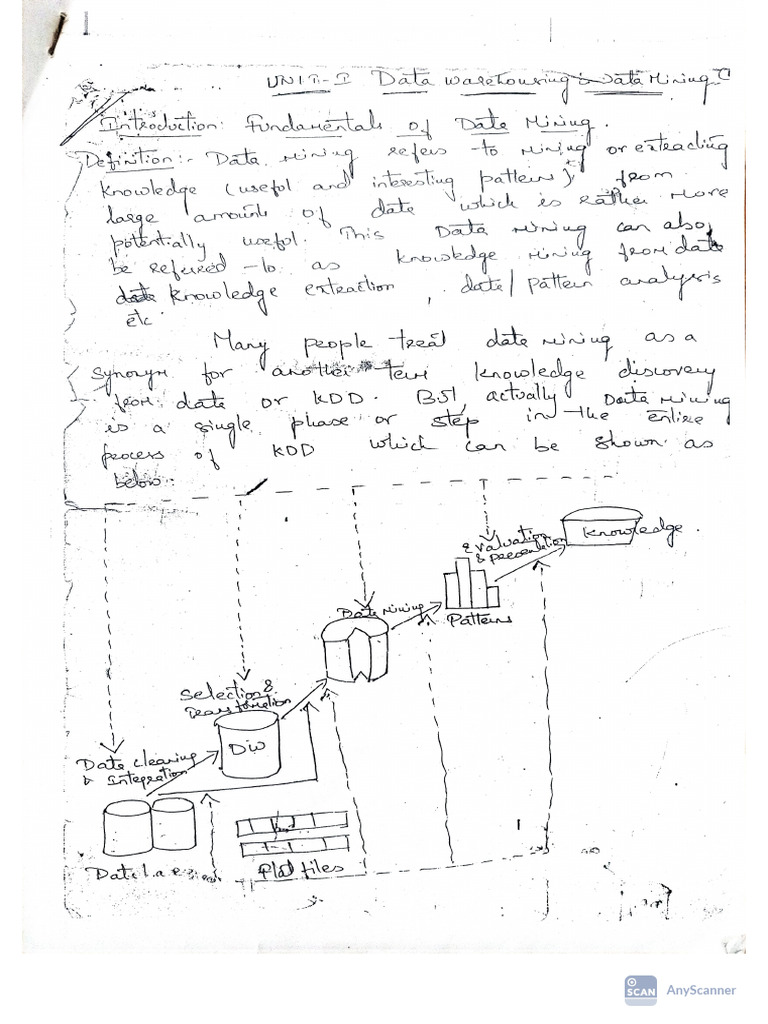 UNIT-I Data warehousing & Data Mining
Introduction: Fundamentals of Data Mining.
Definition:- Data mining refers to mining or extracting
knowledge (useful and interesting pattern) from
large amounts of data which is rather more
potentially useful. This Data mining can also
be referred to as knowledge mining from data
knowledge extraction, data/pattern analysis
etc.
Many people treat data mining as a
synonym for another term knowledge discovery
from data or KDD. But, actually Data mining
is a single phase or step in the entire
process of KDD which can be shown as
below:-
Knowledge.
Evaluation
& presentation
Data mining
Patterns
Selection &
Transformation
DW
Data cleaning
& Integration
Flat files
SCAN AnyScanner